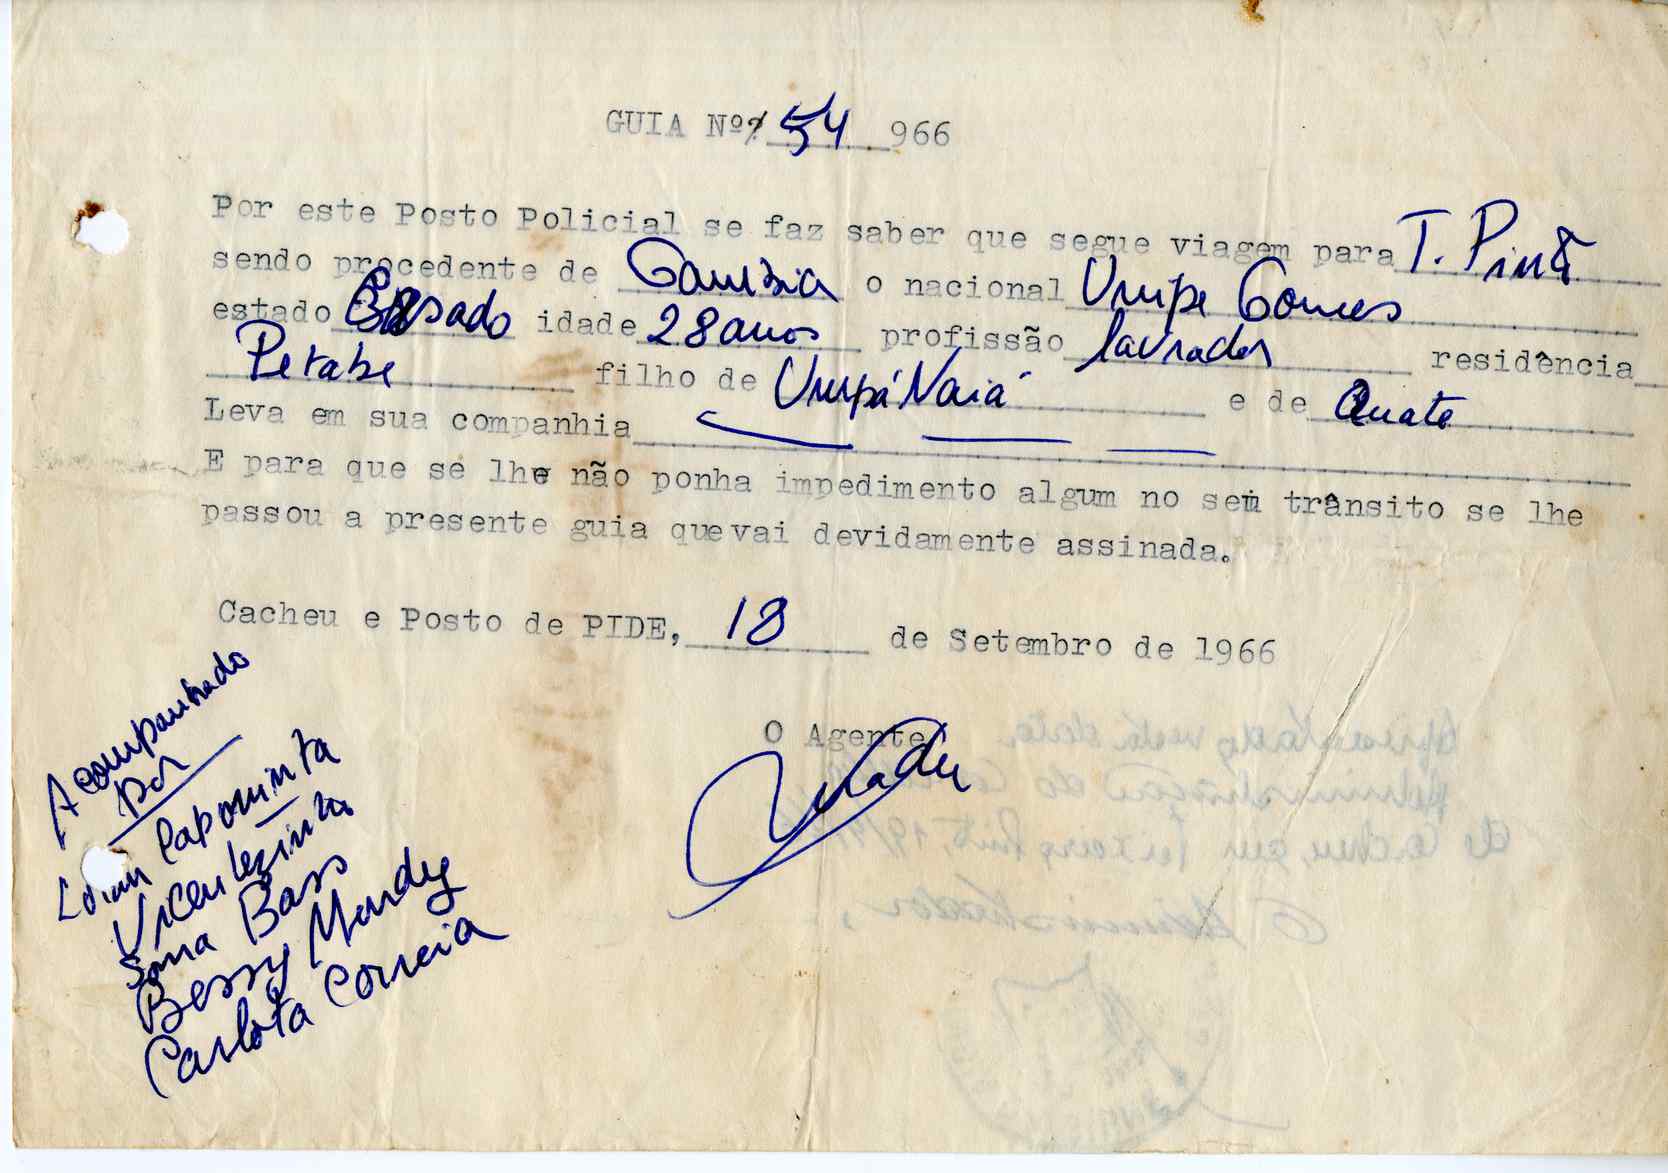 GUIA Nº 54 966
Por este Posto Policial se faz saber que segue viagem para T. Pinto
sendo procedente de Gambia o nacional Umpe Gomes
estado Casado idade 28 anos profissão lavrador residência
Petabe filho de Umpá Naiá e de Quate
Leva em sua companhia
E para que se lhe não ponha impedimento algum no seu trânsito se lhe
passou a presente guia que vai devidamente assinada.
Cacheu e Posto de PIDE, 18 de Setembro de 1966
O Agente
Acompanhado
por
Papominta
Vicen
Sona Bass
Bessy Mandy
Carlota Correia
Apresentado nesta data,
Administração do
de Cacheu, em Teixeira Pinto, 19/9/
O Administrador,